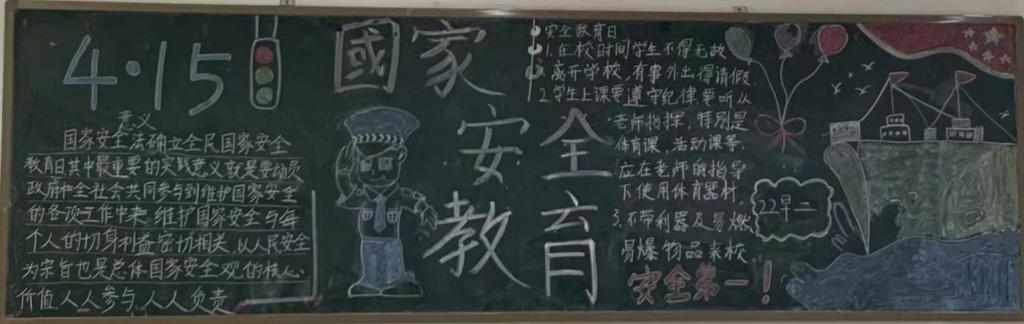 4·15
意义
国家安全法确立全民国家安全
教育日其中最重要的实践意义就是要动员
政府和全社会共同参与到维护国家安全
的各项工作中来 维护国家安全与每
个人的切身利益密切相关 以人民安全
为宗旨也是总体国家安全观的核心
价值 人人参与 人人负责
國家
安全
教育
安全教育日
1.在校时间学生不得无故
离开学校,有事外出得请假
2.学生上课要遵守纪律要听从
老师指挥,特别是
体育课、活动课等
应在老师的指导
下使用体育器材.
3.不带利器及易燃
易爆物品来校
安全第一!
22早二